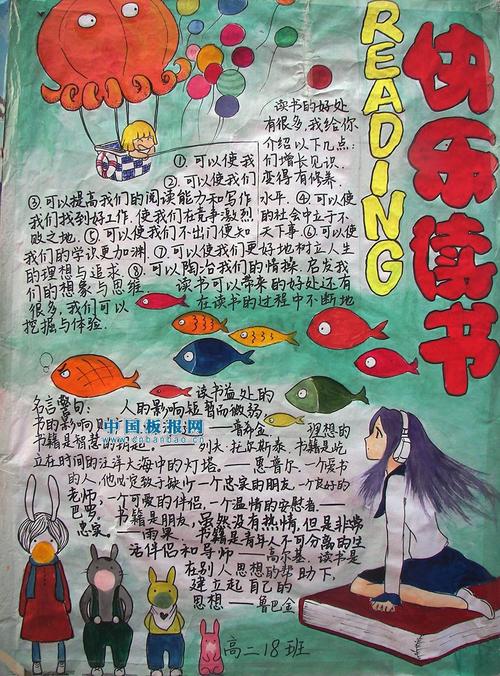 READING
快乐读书
读书的好处
有很多,我给你
介绍以下几点:
①.可以使我们增长见识.
②.可以使我们变得有修养.
③可以提高我们的阅读能力和写作水平.④可以使
我们找到好工作,使我们在竞争激烈的社会中立于不
败之地.⑤可以使我们不出门便知天下事.⑥可以使
我们的学识更加渊.⑦可以使我们更好地树立人生
的理想与追求.⑧可以陶冶我们的情操.启发我
们的想象与思维.读书可以带来的好处还有
很多,我们可以在读书的过程中不断地
挖掘与体验.
读书益处的
名言警句:人的影响短暂而微弱,
书的影响则——普希金.理想的
书籍是智慧的钥匙.——列夫·托尔斯泰.书籍是屹
立在时间的汪洋大海中的灯塔.——惠普尔.一个爱书
的人,他必定致于缺少一个忠实的朋友,一个良好的
老师,一个可爱的伴侣,一个温情的安慰者.——
巴罗.书籍是朋友,虽然没有热情,但是非常
忠实.——雨果.书籍是青年人不可分离的生
活伴侣和导师——高尔基.读书是
在别人思想的帮助下,
建立起自己的
思想——鲁巴金
中国板报网
www.cnbanbao.cn
高二18班